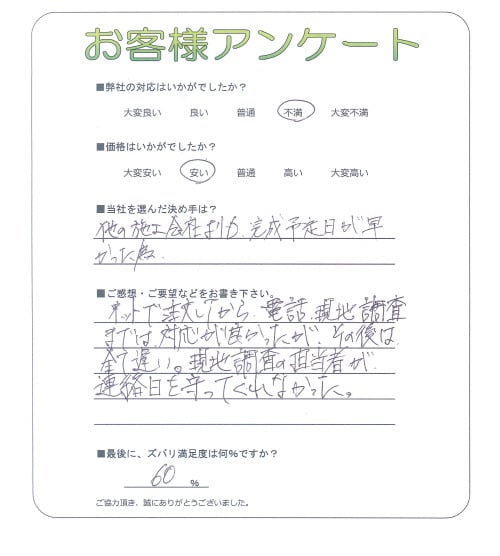 お客様アンケート
■弊社の対応はいかがでしたか？
大変良い 良い 普通 不満 大変不満
■価格はいかがでしたか？
大変安い 安い 普通 高い 大変高い
■当社を選んだ決め手は？
他の施工会社より、完成予定日が早
かった為。
■ご感想・ご要望などをお書き下さい。
ネットで注文してから、電話、現地調査
までは、対応が良かったが、その後は
全て遅い。現地調査の担当者が
連絡日を守ってくれなかった。
■最後に、ズバリ満足度は何％ですか？
60 ％
ご協力頂き、誠にありがとうございました。